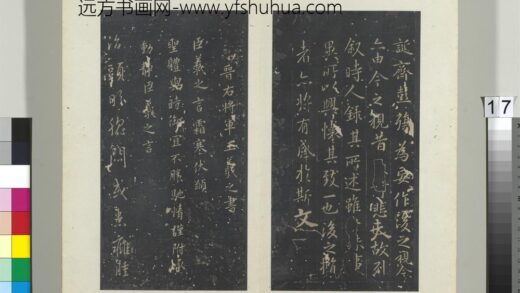 远方书画网-www.yfshuhua.com
誕齊彭殤為妄作後之視今
亦由今之視昔悲夫故列
敘時人錄其所述雖世殊事
異所以興懷其致一也後之攬
者亦將有感於斯文
晉右將軍王羲之書
臣羲之言霜寒伏願
聖體與時御宜不勝馳情謹附承
動靜臣羲之言
17